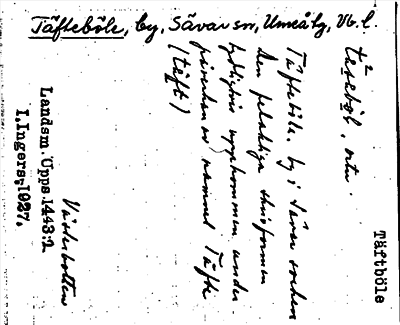 Täfteböle, by, Sävar sn, Umeå tg, Vb. l.
Täftböle
Täfteböle. by i Sävar socken
Den felaktiga skrifformen
tydligtvis uppkommen under
påverkan av namnet Täfte
(täft)
Västerbotten
Landsm. Upps. 1443:2
I. Ingers, 1927.